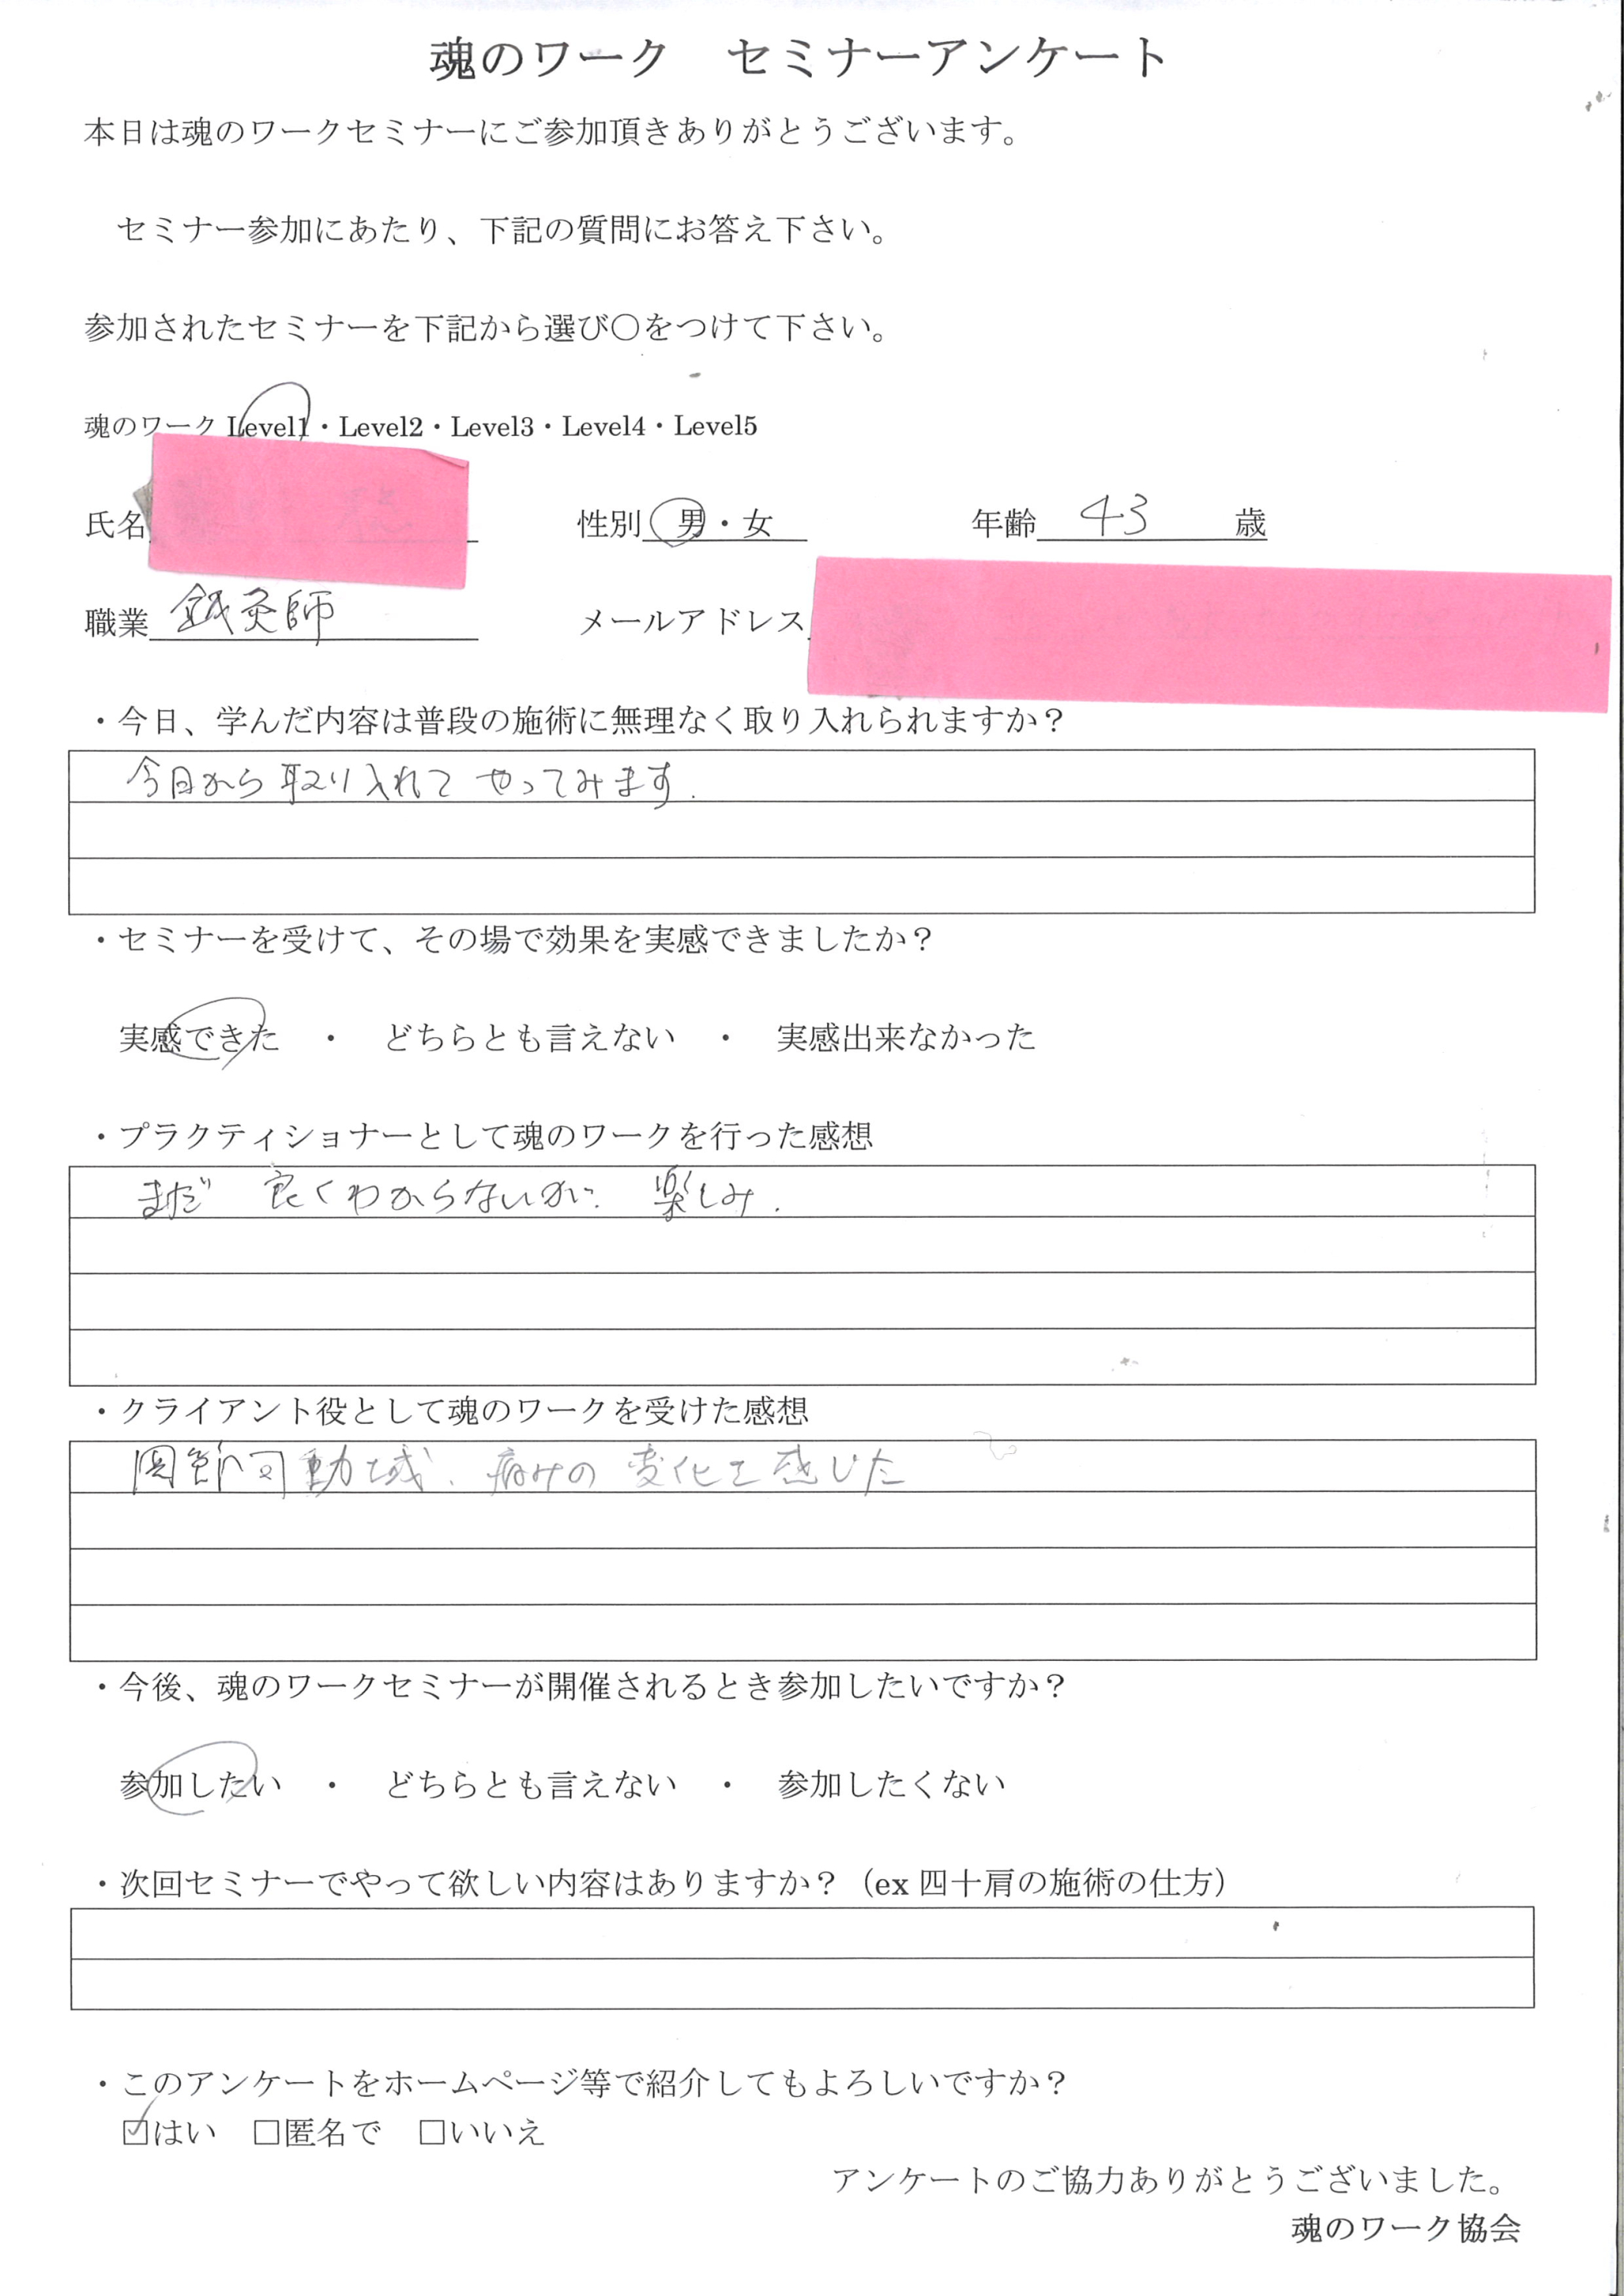 魂のワーク　セミナーアンケート
本日は魂のワークセミナーにご参加頂きありがとうございます。
セミナー参加にあたり、下記の質問にお答え下さい。
参加されたセミナーを下記から選び〇をつけて下さい。
魂のワーク Level1・Level2・Level3・Level4・Level5
氏名 性別 男・女 年齢 43 歳
職業 鍼灸師 メールアドレス
・今日、学んだ内容は普段の施術に無理なく取り入れられますか？
今日から取り入れて やってみます.
・セミナーを受けて、その場で効果を実感できましたか？
実感できた　・　どちらとも言えない　・　実感出来なかった
・プラクティショナーとして魂のワークを行った感想
まだ 良くわからないが. 楽しみ.
・クライアント役として魂のワークを受けた感想
関節可動域、痛みの変化を感じた
・今後、魂のワークセミナーが開催されるとき参加したいですか？
参加したい　・　どちらとも言えない　・　参加したくない
・次回セミナーでやって欲しい内容はありますか？（ex 四十肩の施術の仕方）
・このアンケートをホームページ等で紹介してもよろしいですか？
☑はい　□匿名で　□いいえ
アンケートのご協力ありがとうございました。
魂のワーク協会